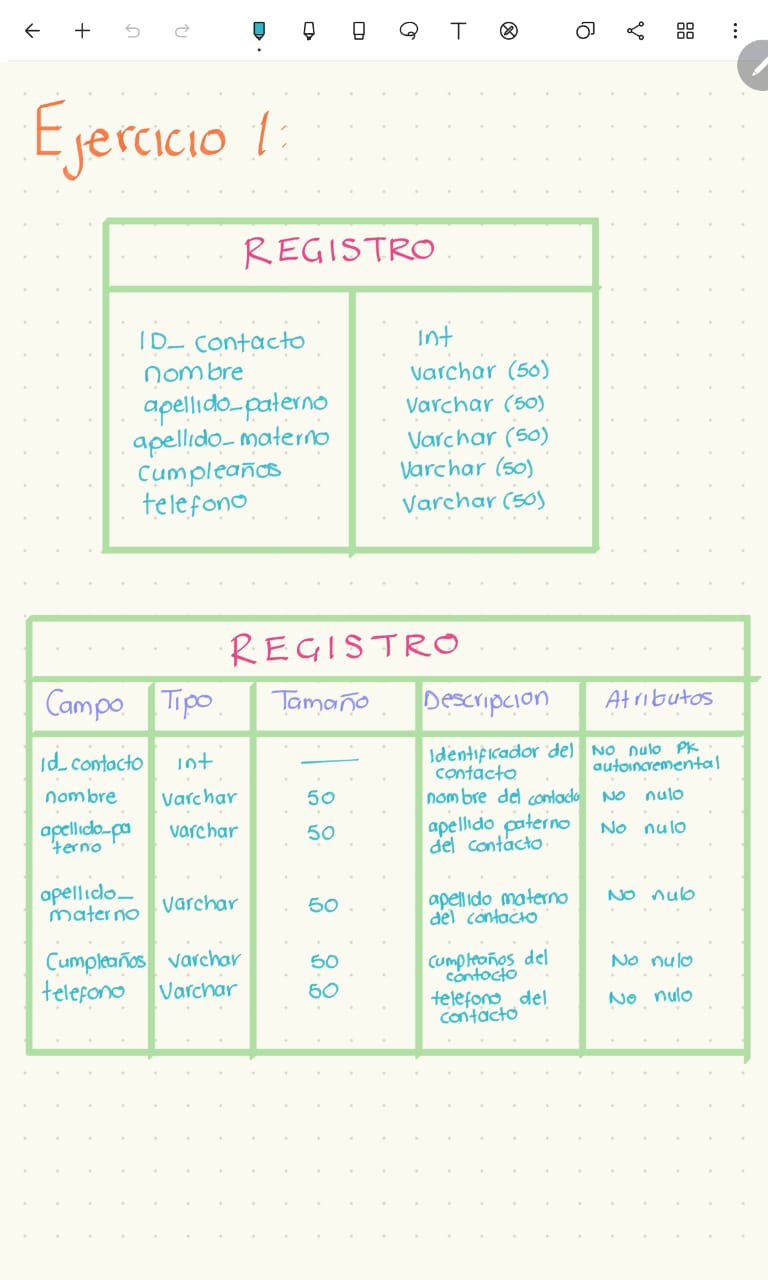 Ejercicio 1:
REGISTRO
ID_ contacto Int
nombre varchar (50)
apellido_paterno varchar (50)
apellido_materno varchar (50)
Cumpleaños Varchar (50)
telefono Varchar (50)
REGISTRO
Campo Tipo Tamaño Descripcion Atributos
Id_contacto int —— Identificador del contacto No nulo PK autoincremental
nombre varchar 50 nombre del contacto No nulo
apellido_pa terno varchar 50 apellido paterno del contacto No nulo
apellido_ materno varchar 50 apellido materno del contacto No nulo
Cumpleaños varchar 50 cumpleaños del contacto No nulo
telefono Varchar 50 telefono del contacto No nulo